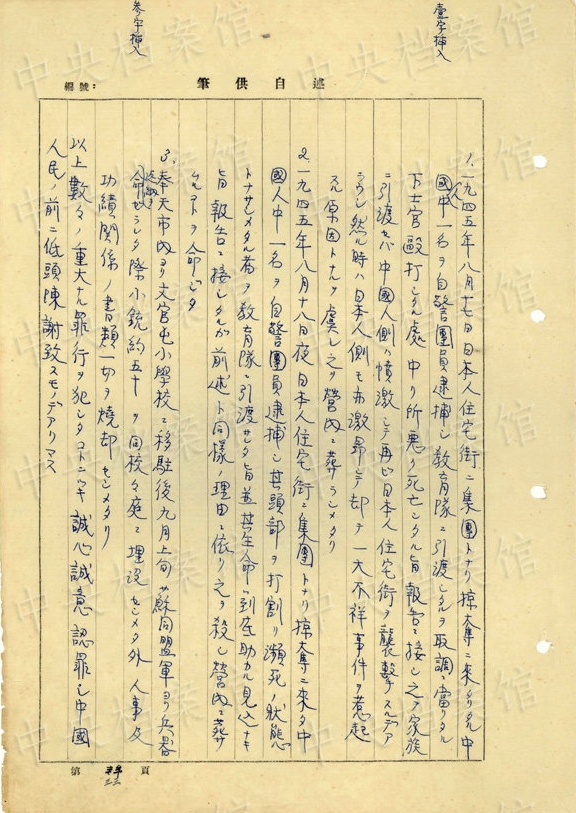 壹字挿入
参字挿入
編號：
筆供自述
1. 一九四五年八月十七日日本人住宅街ニ集團トナリ掠奪ニ來タリタル中
國人中一名ヲ自警團員逮捕シ教育隊ニ引渡シタルヲ取調ニ當リタル
下士官毆打シタル處中リ所悪ク死亡シタル旨報告ニ接シ之ヲ家族
ニ引渡セバ中國人側ハ憤激シテ再ビ日本人住宅街ヲ襲撃スルデア
ラウシ然ル時ハ日本人側モ亦激昂シテ却テ一大不祥事件ヲ惹起
スル原因トナルヲ虞レ之ヲ營内ニ葬ラシメタリ
2. 一九四五年八月十八日夜日本人住宅街ニ集團トナリ掠奪ニ來タ中
國人中一名ヲ自警團員逮捕シ其頭部ヲ打割リ瀕死ノ狀態
トナサシメタル者ヲ教育隊ニ引渡サレタ旨並其生命ハ到底助カル見込ナキ
旨報告ニ接シタルガ前述ト同様ノ理由ニ依リ之ヲ殺シ營内ニ葬
ルコトヲ命ジタ
3. 奉天市内ヨリ文官屯小學校ニ移駐後九月上旬ソ蘇同盟軍ヨリ兵器
返納ヲ命ゼラレタ際小銃約五十ヲ同校々庭ニ埋設セシメタ外人事及
功績関係ノ書類一切ヲ焼却セシメタリ
以上數々ノ重大ナル罪行ヲ犯シタコトニツキ誠心誠意認罪シ中國
人民ノ前ニ低頭陳謝致スモノデアリマス
第 頁
中央档案馆